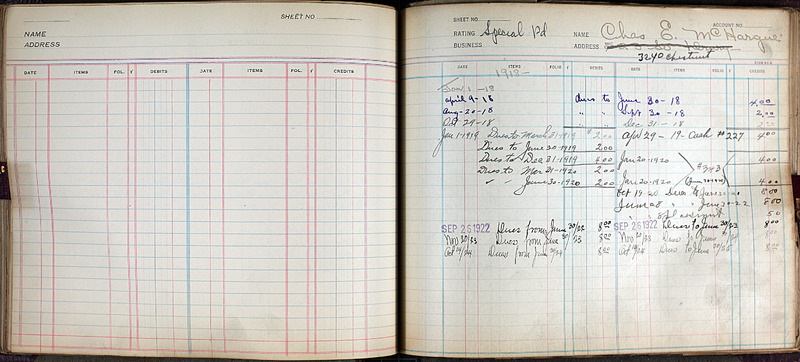 SHEET NO.
NAME
ADDRESS
DATE ITEMS FOL. √ DEBITS DATE ITEMS FOL. √ CREDITS
SHEET NO.
ACCOUNT NO.
RATING Special Pd NAME Chas E. McHargue
BUSINESS ADDRESS
3240 Chestnut
DATE ITEMS FOLIO √ DEBITS DATE ITEMS FOLIO √ CREDITS
1918-
Jan 1-18
april 9-18 dues to June 30-18 4.00
Aug-20-18 " " Sept 30-18 2.00
Oct 29-18 " Dec 31-18
Jan 1-1919 Dues to March 31-1919 2.00 Apr 29-19- Cash #227 4.00
Dues to June 30-1919 2.00
Dues to Dec 31-1919 4.00 Jan 20-1920 4.00
Dues to Mar 31-1920 2.00 #343
" " June 30-1920 2.00 Jan 20-1920 4.00
Oct 19-20 Dues to 8.00
June 30-22 8.00
50
SEP 26 1922 Dues from June 30/22 8.00 SEP 26 1922 Dues to June 30/23 8.00
Nov 20/23 Dues from June 30/23 8.00 Nov 20/23 Dues to June 8.00
Oct 14/24 Dues from June 30/24 8.00 Oct Dues to June 30/25 8.00